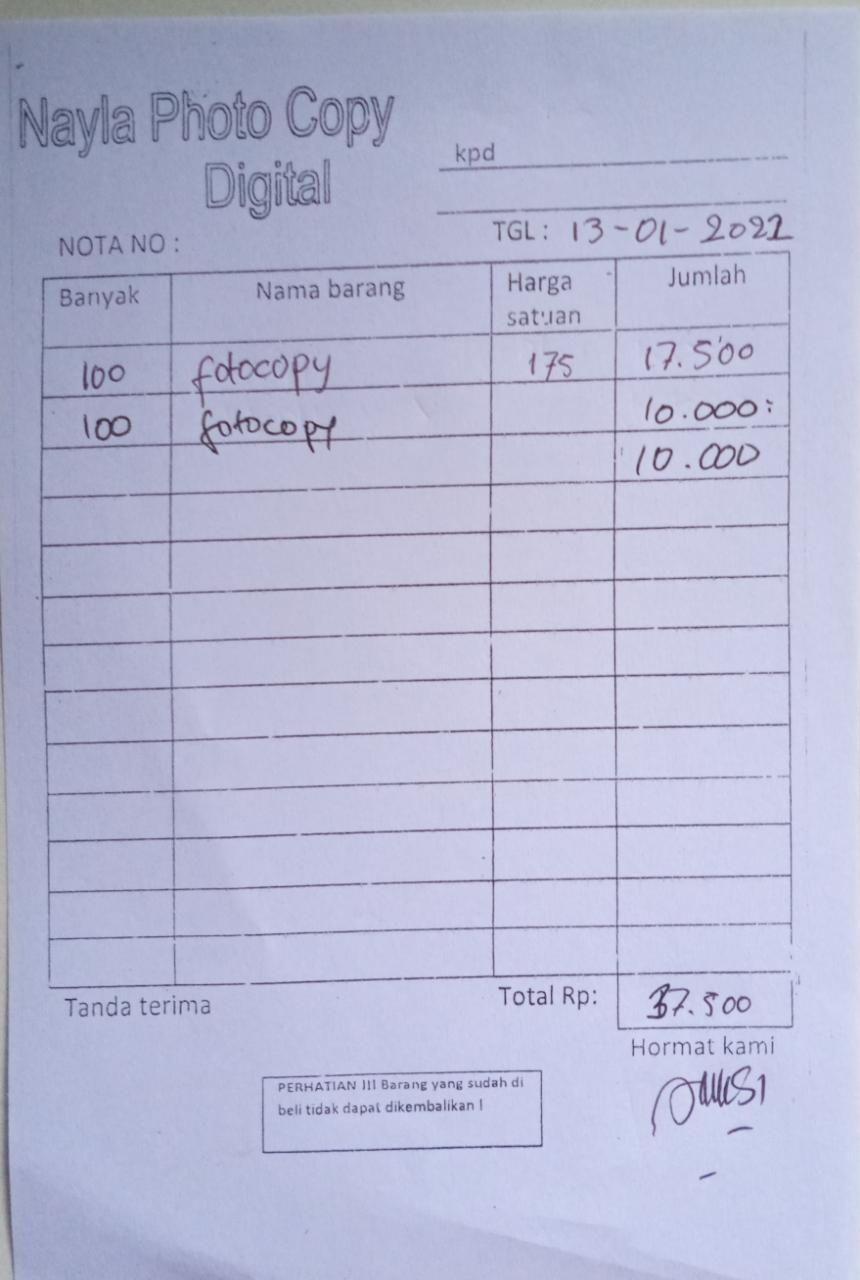 Nayla Photo Copy
Digital
kpd
NOTA NO :
TGL : 13-01-2022
Banyak Nama barang Harga satuan Jumlah
100 fotocopy 175 17.500
100 fotocopy 10.000:
10.000
Tanda terima Total Rp: 37.500
Hormat kami
PERHATIAN !!! Barang yang sudah di
beli tidak dapat dikembalikan !